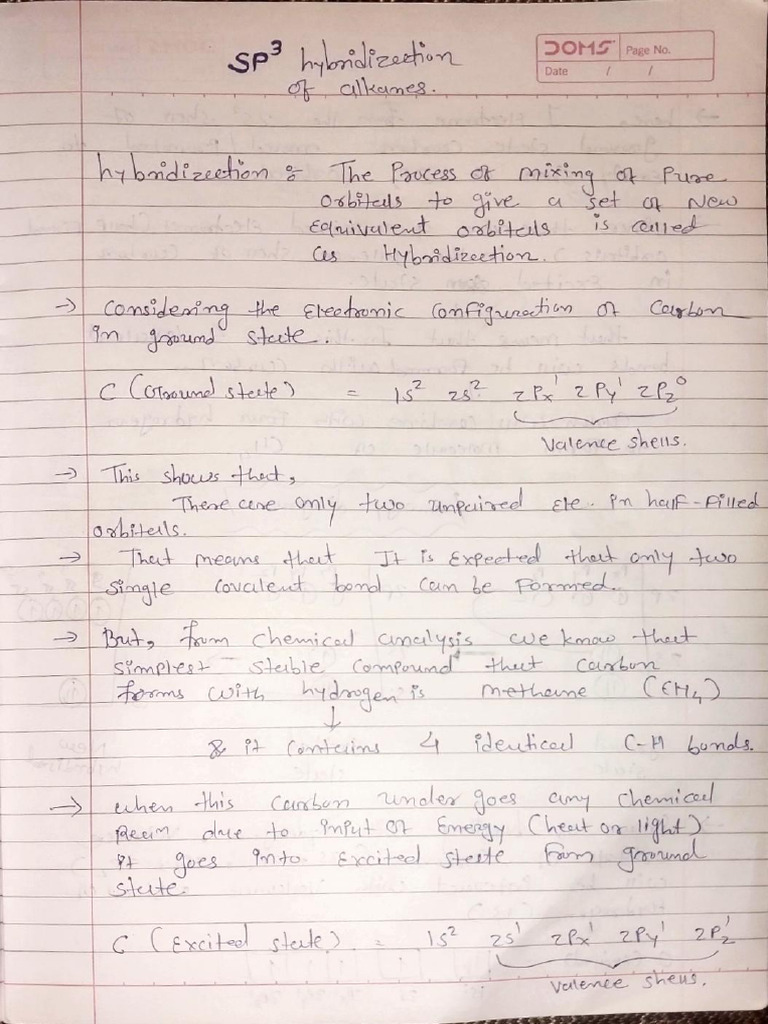 SP³ hybridization
of alkanes.
DOMS Page No.
Date / /
hybridization : The Process of mixing of Pure
orbitals to give a set of New
Equivalent orbitals is called
as Hybridization.
→ Considering the Electronic Configuration of Carbon
in ground state.
C (Ground state) = 1s² 2s² 2Px¹ 2Py¹ 2Pz⁰
Valence shells.
→ This shows that,
There are only two unpaired ele. in half-filled
orbitals.
→ That means that It is Expected that only two
single covalent bond can be formed.
→ But, from chemical analysis we know that
simplest stable compound that carbon
forms with hydrogen is methane (CH₄)
↓
& it contains 4 identical C-H bonds.
→ when this carbon under goes any chemical
due to input of Energy (heat or light)
it goes into Excited state from ground
state.
C (Excited state) = 1s² 2s¹ 2Px¹ 2Py¹ 2Pz¹
Valence shells.